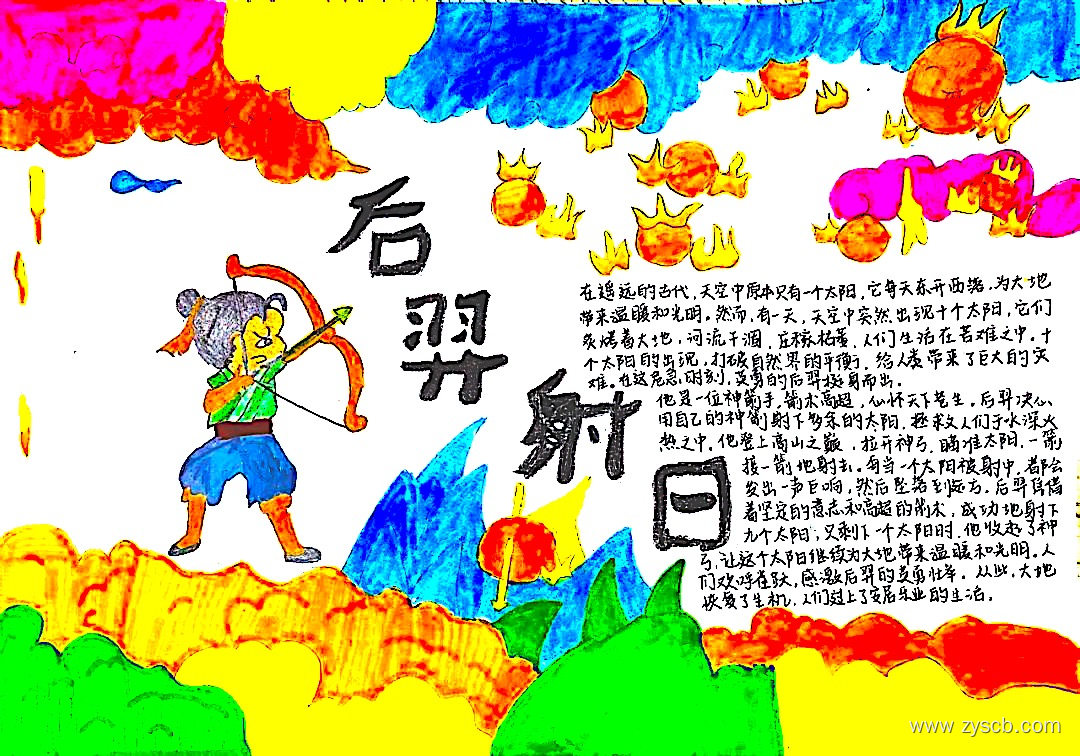 后羿射日
在遥远的古代，天空中原本只有一个太阳，它每天东升西落，为大地
带来温暖和光明。然而，有一天，天空中突然出现十个太阳，它们
炙烤着大地，河流干涸，庄稼枯萎，人们生活在苦难之中。十
个太阳的出现，打破自然界的平衡，给人类带来了巨大的灾
难。在这危急时刻，英勇的后羿挺身而出。
他是一位神箭手，箭术高超，心怀天下苍生。后羿决心
用自己的神箭射下多余的太阳，拯救人们于水深火
热之中。他登上高山之巅，拉开神弓，瞄准太阳，一箭
接一箭地射去。每当一个太阳被射中，都会
发出一声巨响，然后坠落到远方。后羿凭借
着坚定的意志和高超的箭术，成功地射下
九个太阳；只剩下一个太阳时，他收起了神
弓，让这个太阳继续为大地带来温暖和光明。人
们欢呼雀跃，感激后羿的英勇壮举。从此，大地
恢复了生机，人们过上了安居乐业的生活。
www.zyscb.com